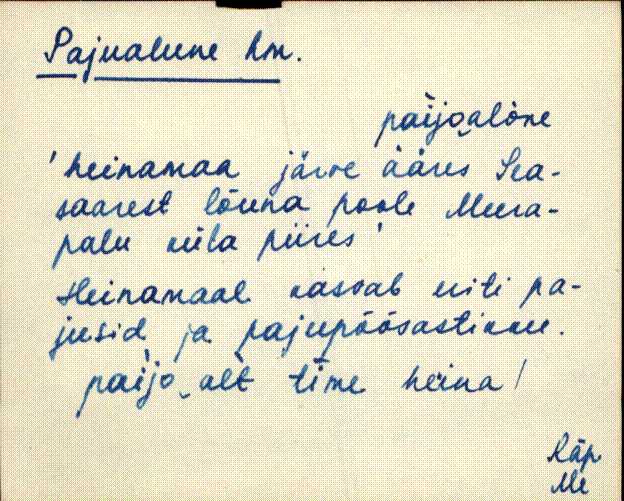 Pajualune hm.
päijo‿alòne
'heinamaa järve ääres Sea-
saarest lõuna poole Meera-
palu küla piires'
Heinamaal kasvab uiti pa-
jusid ja pajupõõsastikku.
päijo‿alt tìme heina!
Räp
Me